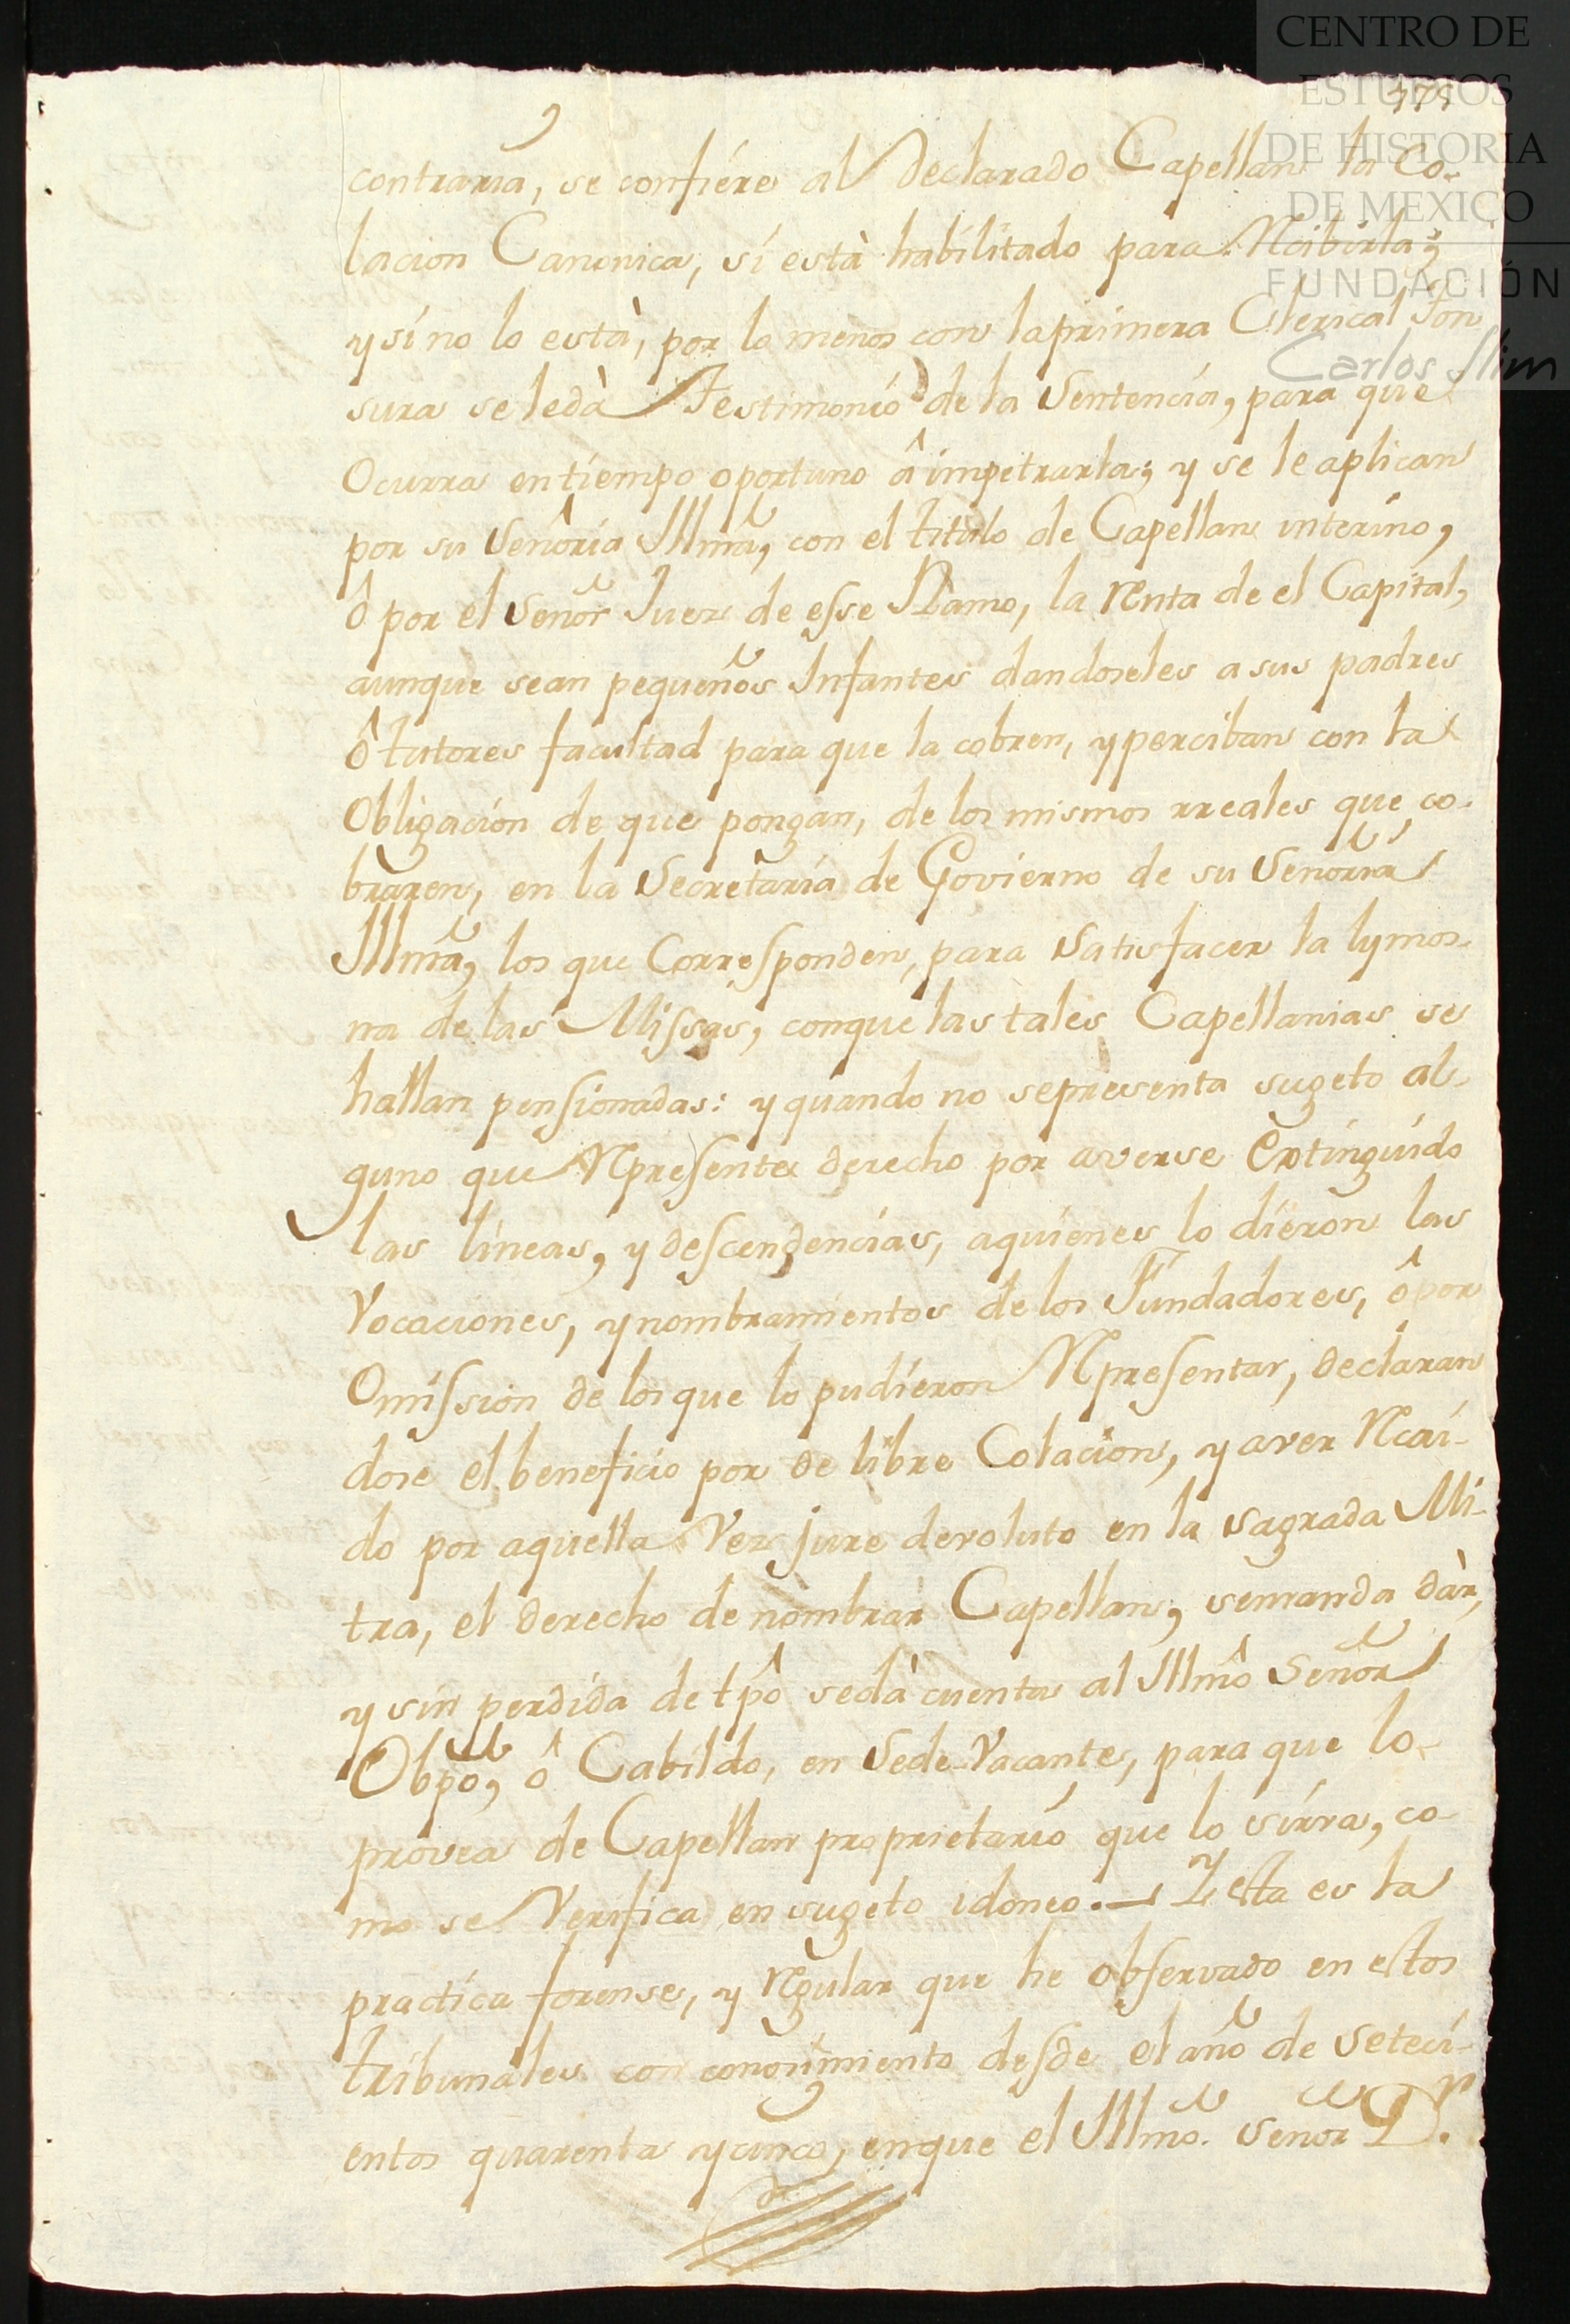 CENTRO DE
ESTUDIOS
DE HISTORIA
DE MEXICO
FUNDACIÓN
Carlos Slim
contraria, se confiére al Declarado Capellan la Co-
lacion Canonica, si està habilitado para Recibirla;
y si no lo està, por lo menos con la primera Clerical Ton
sura se le dà Testimonio de la Sentencia, para que
Ocurra en tiempo oportuno â impetrarla; y se le aplican
por su Señoria Illmã, con el titulo de Capellan interino,
ô por el Señor Juez de esse Ramo, la Renta de el Capital,
aunque sean pequeños Infantes dandoseles a sus padres
ô tutores facultad para que la cobren, y perciban con la
Obligación de que pongan, de los mismos rreales que co-
braren, en la Secretaria de Govierno de su Señoria
Illmã, los que Corresponden, para Satisfacer la lymos-
na de las Missas, conque las tales Capellanias se
hallan pensionadas: y quando no se presenta sugeto al-
guno que Represente derecho por averse Extinguido
las líneas, y descendencias, a quienes lo dieron las
Vocaciones, y nombramientos de los Fundadores, ô por
Omission de los que lo pudieron Representar, declaran
dose el beneficio por de libre Colacion, y aver Recai-
do por aquella Vez jure devoluto en la Sagrada Mi-
tra, el derecho de nombrar Capellan, se manda dàr,
y sin perdida de tpô se dà cuenta al Illmô Señor
Obpô, ô Cabildo, en Sede-Vacante, para que lo-
provea de Capellan proprietario que lo sirva, co-
mo se Verifica en sugeto idoneo. — Y esta es la
practica forense, y Regular que he observado en estos
tribunales con conosimiento desde el año de Seteci-
entos quarenta y cinco, en que el Illmõ. Señor D.r